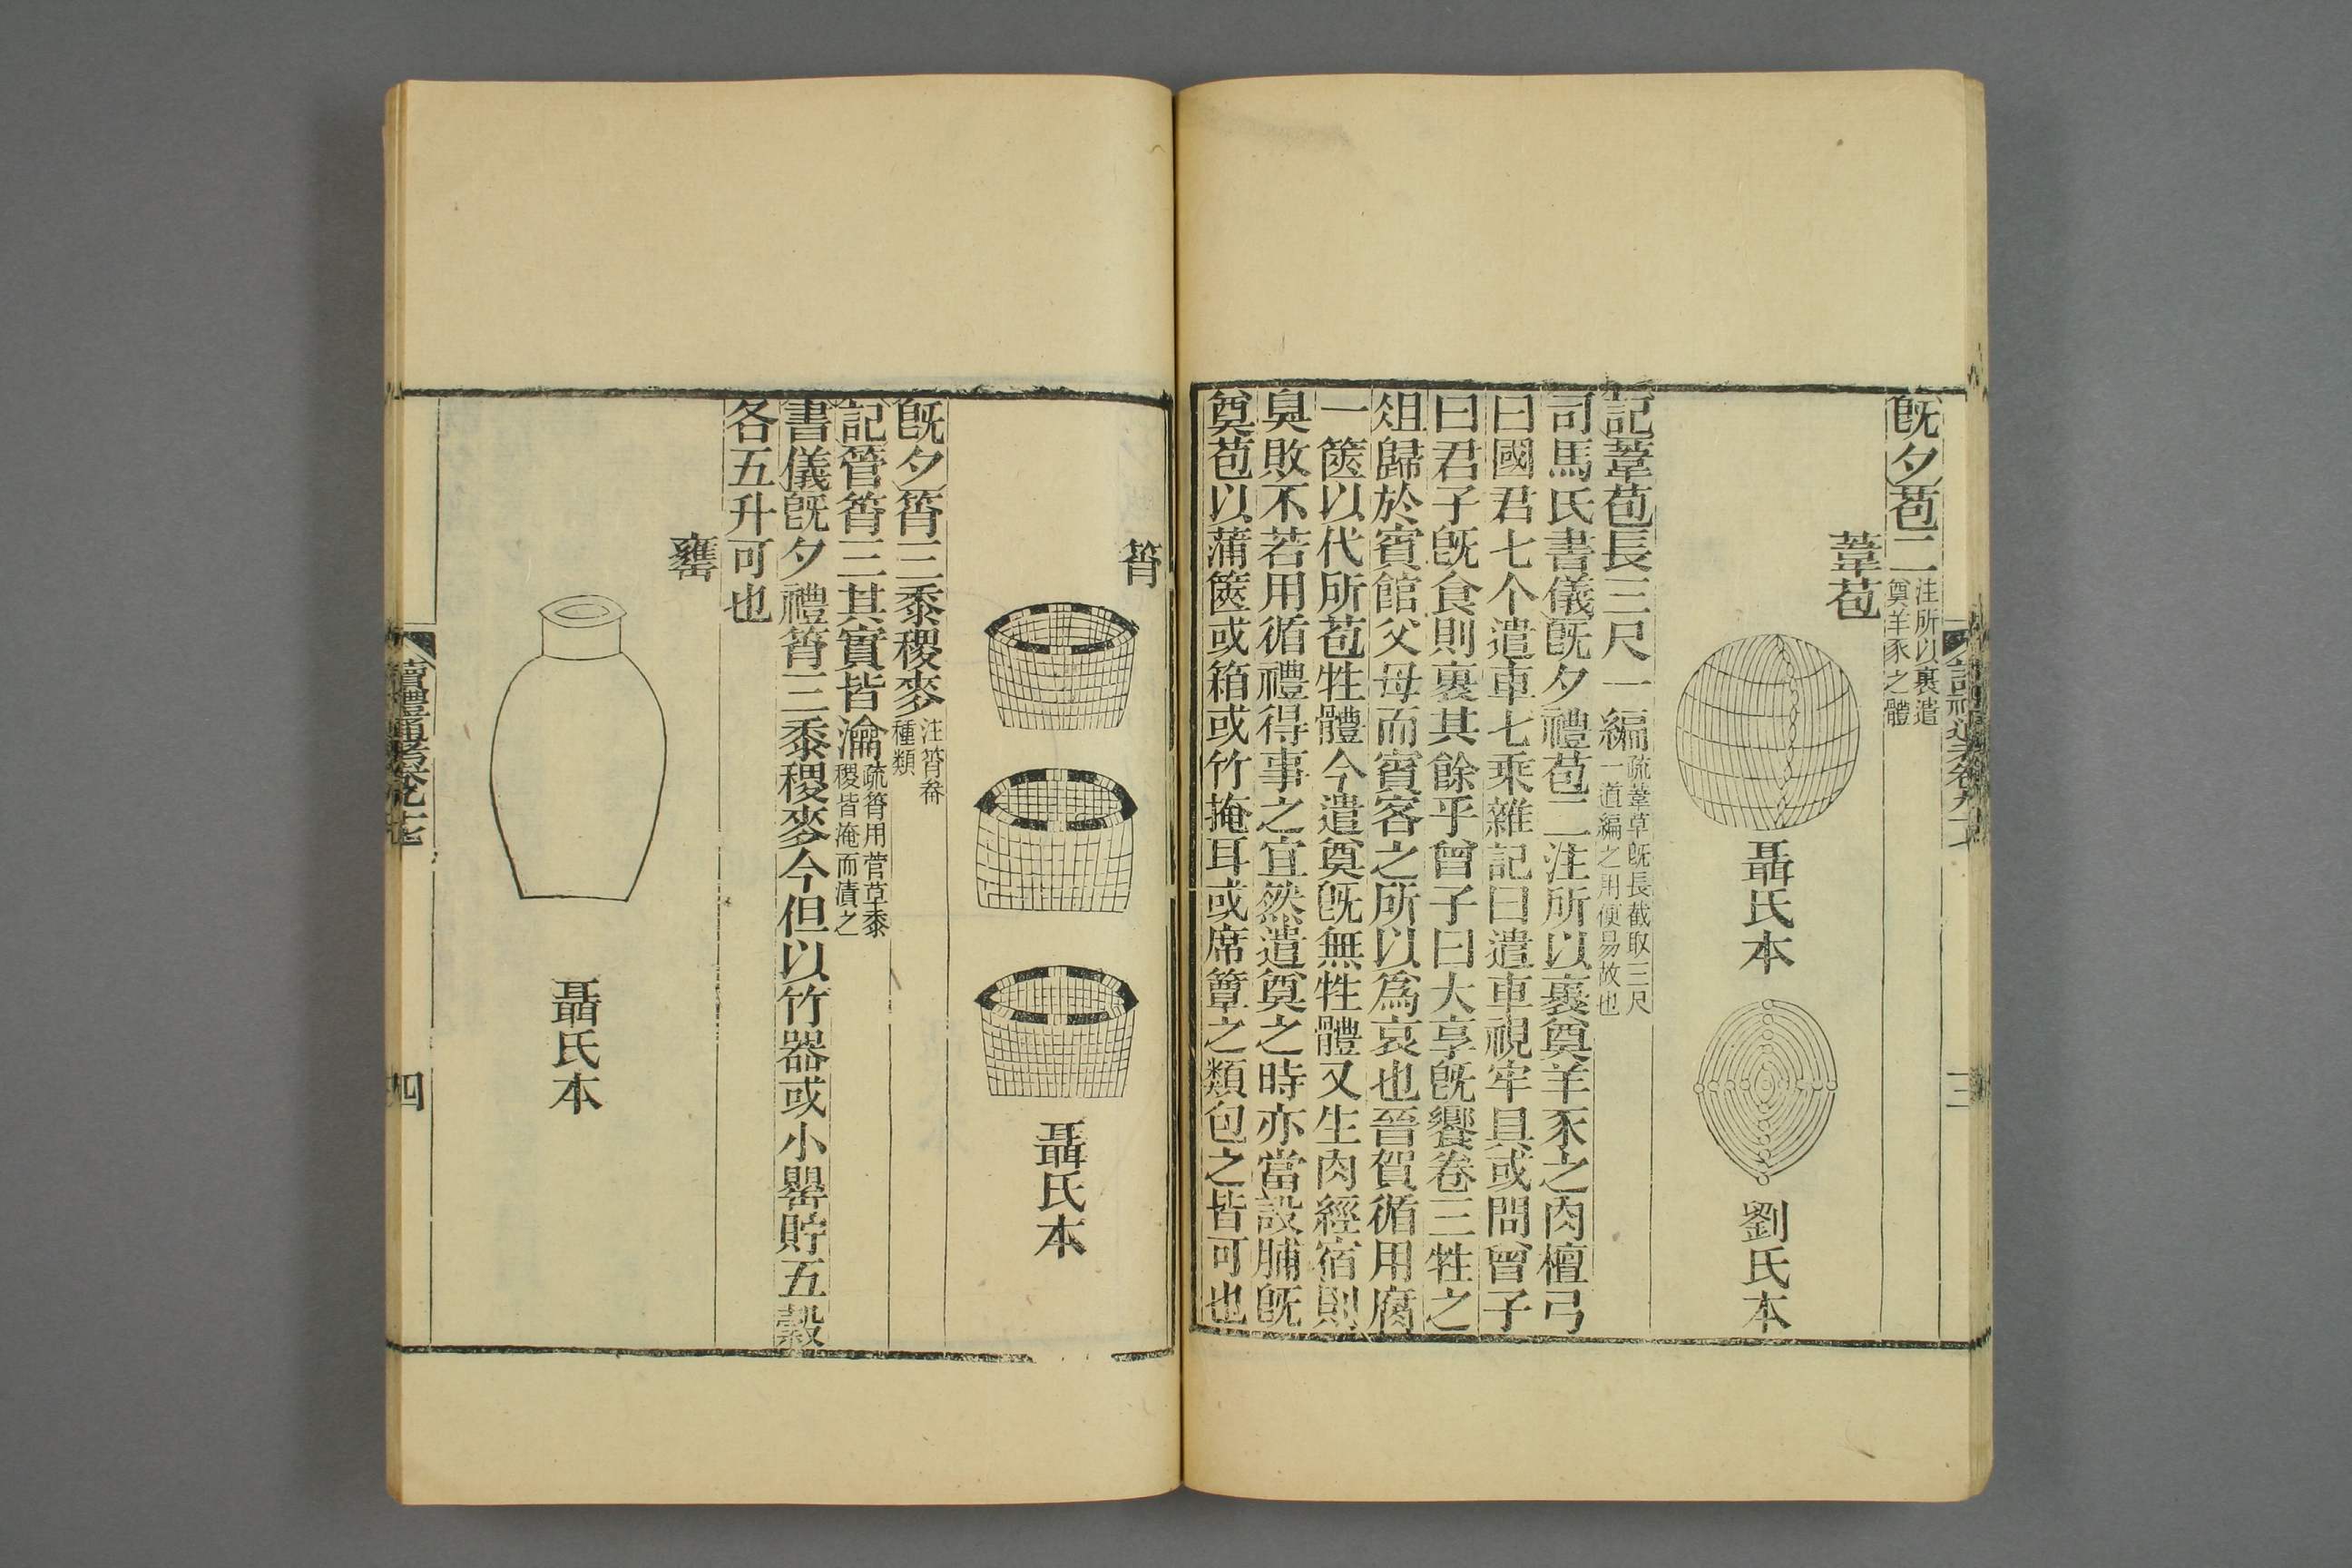 既夕苞二注所以裹遣奠羊豕之體
葦苞
聶氏本
劉氏本
記葦苞長三尺一編疏葦草既長截取三尺一道編之用便易故也
司馬氏書儀既夕禮苞二注所以裹奠羊豕之肉檀弓
曰國君七个遣車七乘雜記曰遣車視牢具或問曾子
曰君子既食則裹其餘乎曾子曰大享既饗卷三牲之
俎歸於賓館父母而賓客之所以爲哀也晉賀循用腐
一篋以代所苞牲體今遣奠既無牲體又生肉經宿則
臭敗不若用循禮得事之宜然遣奠之時亦當設脯既
奠苞以蒲篋或箱或竹掩耳或席簟之類包之皆可也
三
筲
聶氏本
既夕筲三黍稷麥注筲畚種類
記菅筲三其實皆瀹疏筲用菅草黍稷皆淹而漬之
書儀既夕禮筲三黍稷麥今但以竹器或小罌貯五穀
各五升可也
罋
聶氏本
讀禮通考卷九十七
四